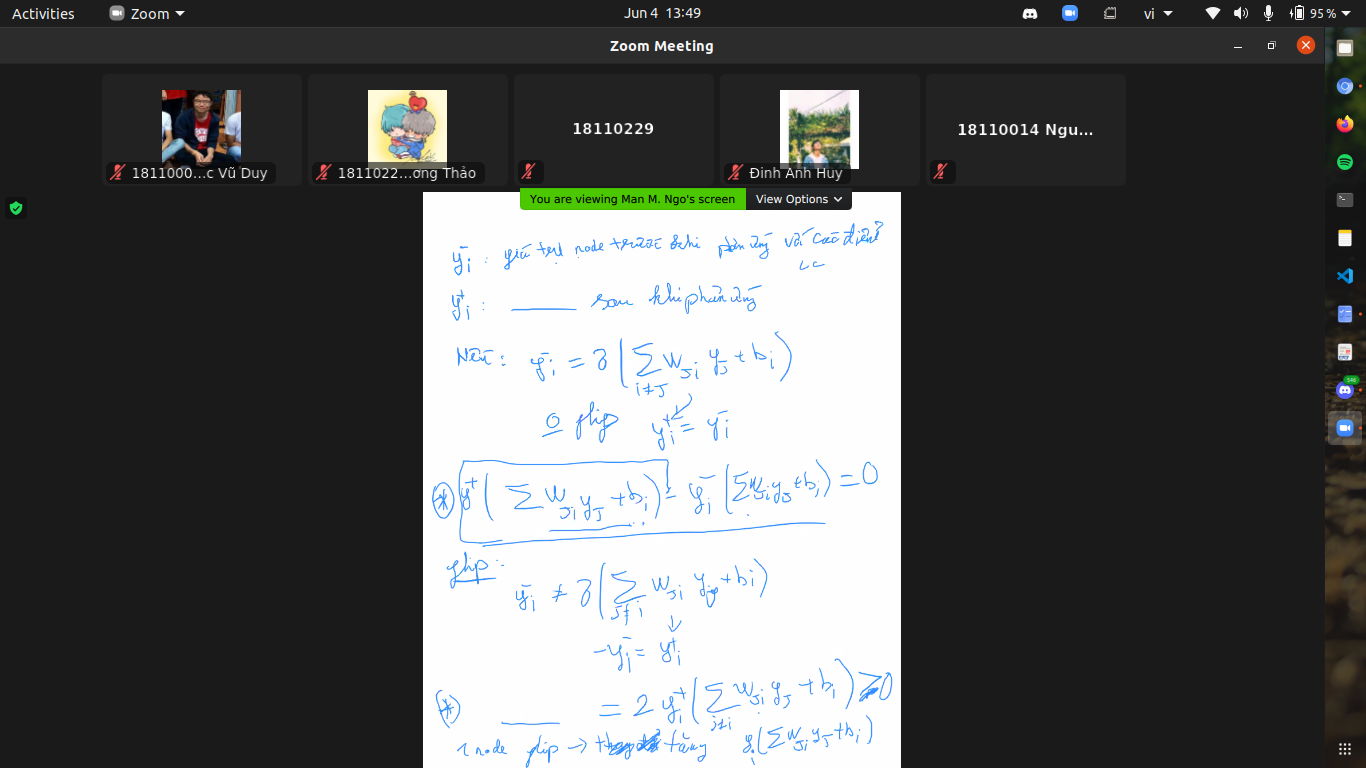 Activities Zoom Jun 4 13:49 vi 95 %
Zoom Meeting
18110229
18110014 Ngu...
1811000...c Vũ Duy 1811022...ơng Thảo Đinh Anh Huy
You are viewing Man M. Ngo's screen View Options
y_i^- : giá trị node trước khi phản ứng với các
y_i^+ : ____ sau khi phản ứng
Nếu : y_i^- = z ( ∑_{i≠j} w_{ji} y_j + b_i )
0 flip y_i^+ = y_i^-
(*) y^+ ( ∑ w_{ji} y_j + b_i ) - y_i^- ( ∑ w_{ji} y_j + b_i ) = 0
flip :
y_i^- ≠ z ( ∑_{j≠i} w_{ji} y_j + b_i )
-y_i^- = y_i^+
(*) ____ = 2 y_i^+ ( ∑_{j≠i} w_{ji} y_j + b_i ) ≥ 0
1 node flip → tăng y_i ( ∑ w_{ji} y_j + b_i )
548